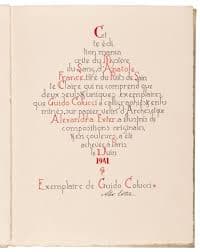 Cet
te édi
tion manus
crite du Mystère
du Sang, d'Anatole
France, tiré du Puits de Sain
te Claire qui ne comprend que
deux seuls & uniques exemplaires,
que Guido Colucci a calligraphiés & enlu
minés, sur papier verts d'Arches, & que
Alexandra Exter a illustrés de
compositions originales,
& en couleurs, a été
achevée à Paris
le Juin
1941
Exemplaire de Guido Colucci
Alex Exter